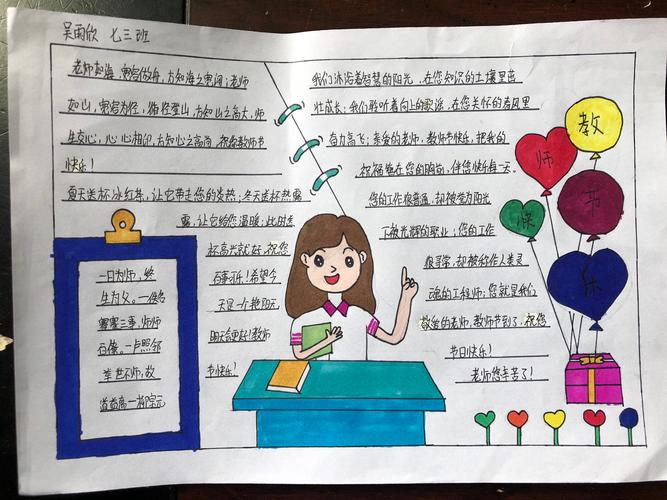 吴雨欣 七三班
老师如海,宽宕做舟,方知海之宽阔;老师
如山,宽宕为径,循径登山,方知山之高大,师
生交心,心心相印,方知心之高尚,祝您教师节
快乐!
夏天送杯冰红茶,让它带走您的炎热;冬天送杯热
露,让它给您温暖;此时送
杯高兴就好,祝您
百事可乐!希望今
天是个艳阳天,
明天会更好!教师
节快乐!
一日为师,终
生为父。—关汉卿
石像。—卢照邻
举世不师,故
道益离—柳宗元
我们沐浴着智慧的阳光,在您知识的土壤里茁
壮成长;我们聆听着向上的歌谣,在您关怀的春风里
奋力高飞;亲爱的老师,教师节快乐,把我的
祝福常在您的胸前,伴您快乐每一天。
您的工作很普通,却被誉为阳光
下最光辉的职业;您的工作
很寻常,却被称作人类灵
魂的工程师;您就是我们
敬爱的老师,教师节到了,祝您
节日快乐!
老师您辛苦了!
教
师
节
快
乐